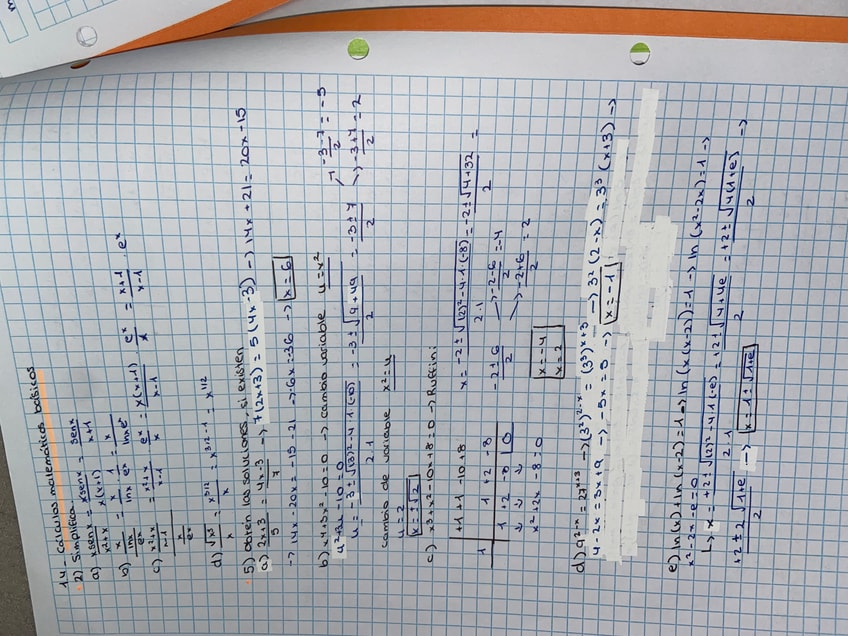 1.4 - Cálculos matemáticos básicos
2) Simplifica
a) xsenx/x²+x = xsenx/x(x+1) = senx/x+1
b) x/lnx / eˣ = x/lnx · 1/eˣ = x/lnxeˣ
c) x²+x/x-1 / x/eˣ = x²+x/x-1 · eˣ/x = x(x+1)/x-1 · eˣ/x = x+1/x-1 · eˣ
d) √x³/x = x^3/2/x = x^3/2-1 = x^1/2
5) Obtén las soluciones, si existen
a) 2x+3/5 = 4x-3/7 -> 7(2x+3) = 5(4x-3) -> 14x+21 = 20x-15
-> 14x-20x = -15-21 -> -6x = -36 -> x=6
b) x⁴+3x²-10=0 -> cambio variable u=x²
u²+3u-10=0
u = -3±√(3)²-4·1·(-10)/2·1 = -3±√4+49/2 = -3±7/2 -> -3-7/2 = -5
-> -3+7/2 = 2
cambio de variable x²=u
u=2
x=±√2
c) x³+x²-10x+8=0 -> Ruffini
+1 +1 -10 +8
1 1 +2 -8
1 +2 -8 0
x²+2x-8=0
x = -2±√(2)²-4·1·(-8)/2·1 = -2±√4+32/2 =
-2±6/2 -> -2-6/2 = -4
-> -2+6/2 = 2
x=-4
x=2
d) 9^2-x = 27^x+3 -> (3²)^2-x = (3³)^x+3 -> 3²(2-x) = 3³(x+3) ->
4-2x = 3x+9 -> -5x = 5 -> x=-1
e) ln(x)+ln(x-2)=1 -> ln(x(x-2))=1 -> ln(x²-2x)=1 ->
x²-2x-e=0
↳ x = +2±√(2)²-4·1·(-e)/2·1 = +2±√4+4e/2 = +2±√4(1+e)/2 ->
+2±2√1+e/2 -> x=1±√1+e